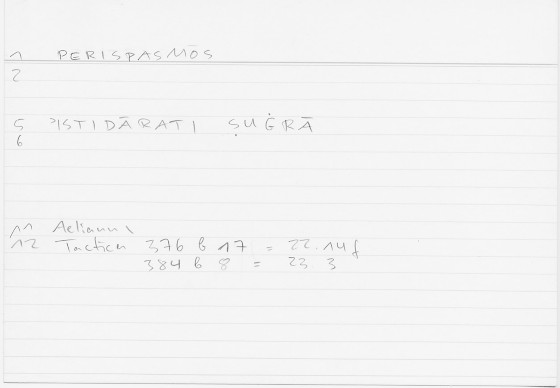 1 PERISPASMŌS
2
5 ʾISTIDĀRATI ṢUĠRĀ
6
11 Aelianus
12 Tactica 376 b 17 = 22.14f
384 b 8 = 23 3